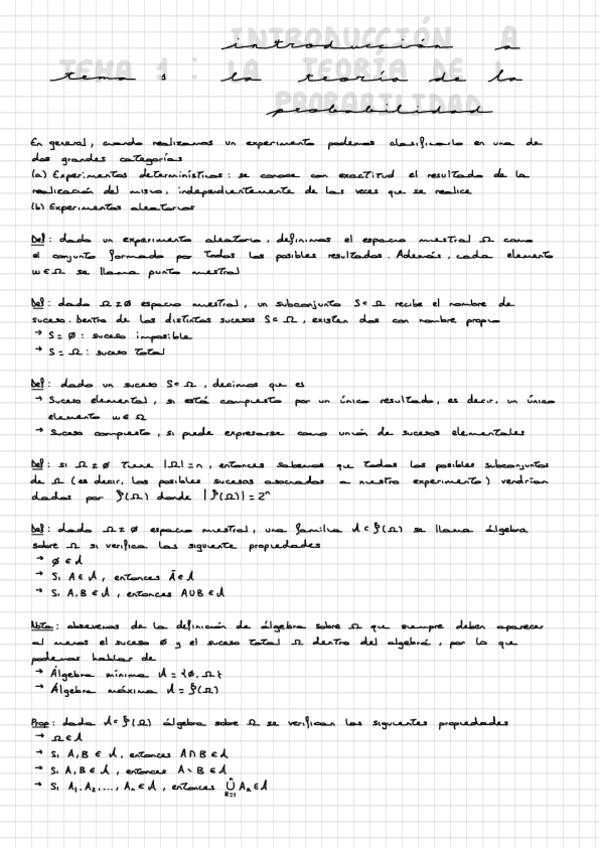 TEMA 1 : INTRODUCCIÓN A LA TEORÍA DE LA PROBABILIDAD
En general, cuando realizamos un experimento podemos clasificarlo en una de
dos grandes categorías
(a) Experimentos determinísticos: se conoce con exactitud el resultado de la
realización del mismo, independientemente de las veces que se realice
(b) Experimentos aleatorios
Def: dado un experimento aleatorio, definimos el espacio muestral Ω como
el conjunto formado por todos los posibles resultados. Además, cada elemento
ω ∈ Ω se llama punto muestral
Def: dado Ω ≠ ∅ espacio muestral, un subconjunto S ⊂ Ω recibe el nombre de
suceso. Dentro de los distintos sucesos S ⊂ Ω, existen dos con nombre propio
→ S = ∅ : suceso imposible
→ S = Ω : suceso total
Def: dado un suceso S ⊂ Ω, decimos que es
→ Suceso elemental, si está compuesto por un único resultado, es decir, un único
elemento ω ∈ Ω
→ Suceso compuesto, si puede expresarse como unión de sucesos elementales
Def: si Ω ≠ ∅ tiene |Ω| = n, entonces sabemos que todos los posibles subconjuntos
de Ω (es decir, los posibles sucesos asociados a nuestro experimento) vendrían
dados por P(Ω) donde |P(Ω)| = 2ⁿ
Def: dado Ω ≠ ∅ espacio muestral, una familia A ⊂ P(Ω) se llama álgebra
sobre Ω si verifica las siguiente propiedades
→ ∅ ∈ A
→ Si A ∈ A, entonces Ā ∈ A
→ Si A, B ∈ A, entonces A ∪ B ∈ A
Nota: observemos de la definición de álgebra sobre Ω que siempre deben aparecer
al menos el suceso ∅ y el suceso total Ω dentro del algebra, por lo que
podemos hablar de
→ Álgebra mínima A = {∅, Ω}
→ Álgebra máxima A = P(Ω)
Prop: dada A ⊂ P(Ω) álgebra sobre Ω se verifican las siguientes propiedades
→ Ω ∈ A
→ Si A, B ∈ A, entonces A ∩ B ∈ A
→ Si A, B ∈ A, entonces A \ B ∈ A
→ Si A₁, A₂, ..., Aₙ ∈ A, entonces ⋃ₖ₌₁ⁿ Aₖ ∈ A